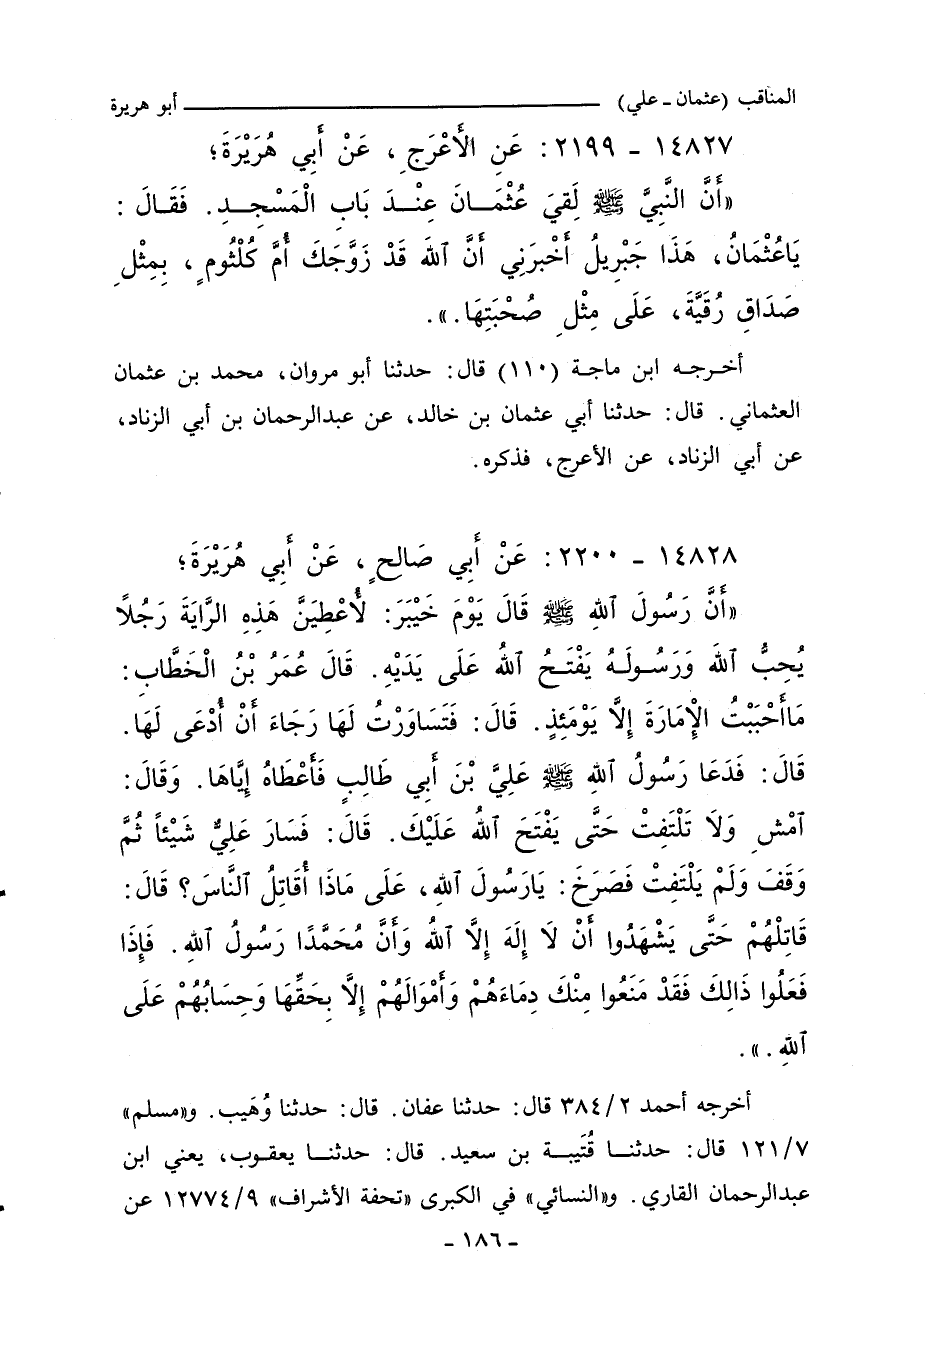 المناقب (عثمان ـ علي) ــــــــــــــــــــ أبو هريرة
١٤٨٢٧ ـ ٢١٩٩ : عَنِ الأَعْرَجِ ، عَنْ أَبِي هُرَيْرَةَ؛
«أَنَّ النَّبِيَّ ﷺ لَقِيَ عُثْمَـانَ عِنْـدَ بَابِ الْمَسْجِـدِ. فَقَالَ :
يَاعُثْمَانُ، هَذَا جَبْرِيلُ أَخْبَرَنِي أَنَّ ٱللَّهَ قَدْ زَوَّجَكَ أُمَّ كُلْثُومٍ ، بِمِثْلِ
صَدَاقِ رُقَيَّةَ، عَلَى مِثْلِ صُحْبَتِهَا.».
أخـرجـه ابن ماجـة (١١٠) قال: حدثنا أبو مروان، محمد بن عثمان
العثماني. قال: حدثنا أبي عثمان بن خالد، عن عبدالرحمان بن أبي الزناد،
عن أبي الزناد، عن الأعرج، فذكره.
١٤٨٢٨ ـ ٢٢٠٠ : عَنْ أَبِي صَالِحٍ ، عَنْ أَبِي هُرَيْرَةَ؛
«أَنَّ رَسُولَ ٱللهِ ﷺ قَالَ يَوْمَ خَيْبَرَ: لأُعْطِيَنَّ هَذِهِ الرَّايَةَ رَجُلًا
يُحِبُّ ٱللَّهَ وَرَسُولَـهُ يَفْتَـحُ ٱللَّهُ عَلَى يَدَيْهِ. قَالَ عُمَرُ بْنُ الْخَطَّابِ :
مَاأَحْبَبْتُ الإِمَارَةَ إِلَّا يَوْمَئِذٍ. قَالَ: فَتَسَاوَرْتُ لَهَا رَجَاءَ أَنْ أُدْعَى لَهَا.
قَالَ: فَدَعَا رَسُولُ ٱللهِ ﷺ عَلِيَّ بْنَ أَبِي طَالِبٍ فَأَعْطَاهُ إِيَّاهَا. وَقَالَ:
ٱمْشِ وَلَا تَلْتَفِتْ حَتَّى يَفْتَحَ ٱللَّهُ عَلَيْكَ. قَالَ: فَسَارَ عَلِيٌّ شَيْئاً ثُمَّ
وَقَفَ وَلَمْ يَلْتَفِتْ فَصَرَخَ: يارَسُولَ ٱللهِ، عَلَى مَاذَا أُقَاتِلُ ٱلنَّاسَ؟ قَالَ:
قَاتِلْهُمْ حَتَّى يَشْهَدُوا أَنْ لَا إِلَهَ إِلَّا ٱللَّهُ وَأَنَّ مُحَمَّدًا رَسُولُ ٱللهِ. فَإِذَا
فَعَلُوا ذَالِكَ فَقَدْ مَنَعُوا مِنْكَ دِمَاءَهُمْ وَأَمْوَالَهُمْ إِلَّا بِحَقِّهَا وَحِسَابُهُمْ عَلَى
ٱللهِ.».
أخرجه أحمد ٣٨٤/٢ قال: حدثنا عفان. قال: حدثنا وُهَيب. و«مسلم»
١٢١/٧ قال: حدثنـا قُتَيبـة بن سعيد. قال: حدثنـا يعقـوب، يعني ابن
عبدالرحمان القاري. و«النسائي» في الكبرى «تحفة الأشراف» ١٢٧٧٤/٩ عن
ـ ١٨٦ ـ